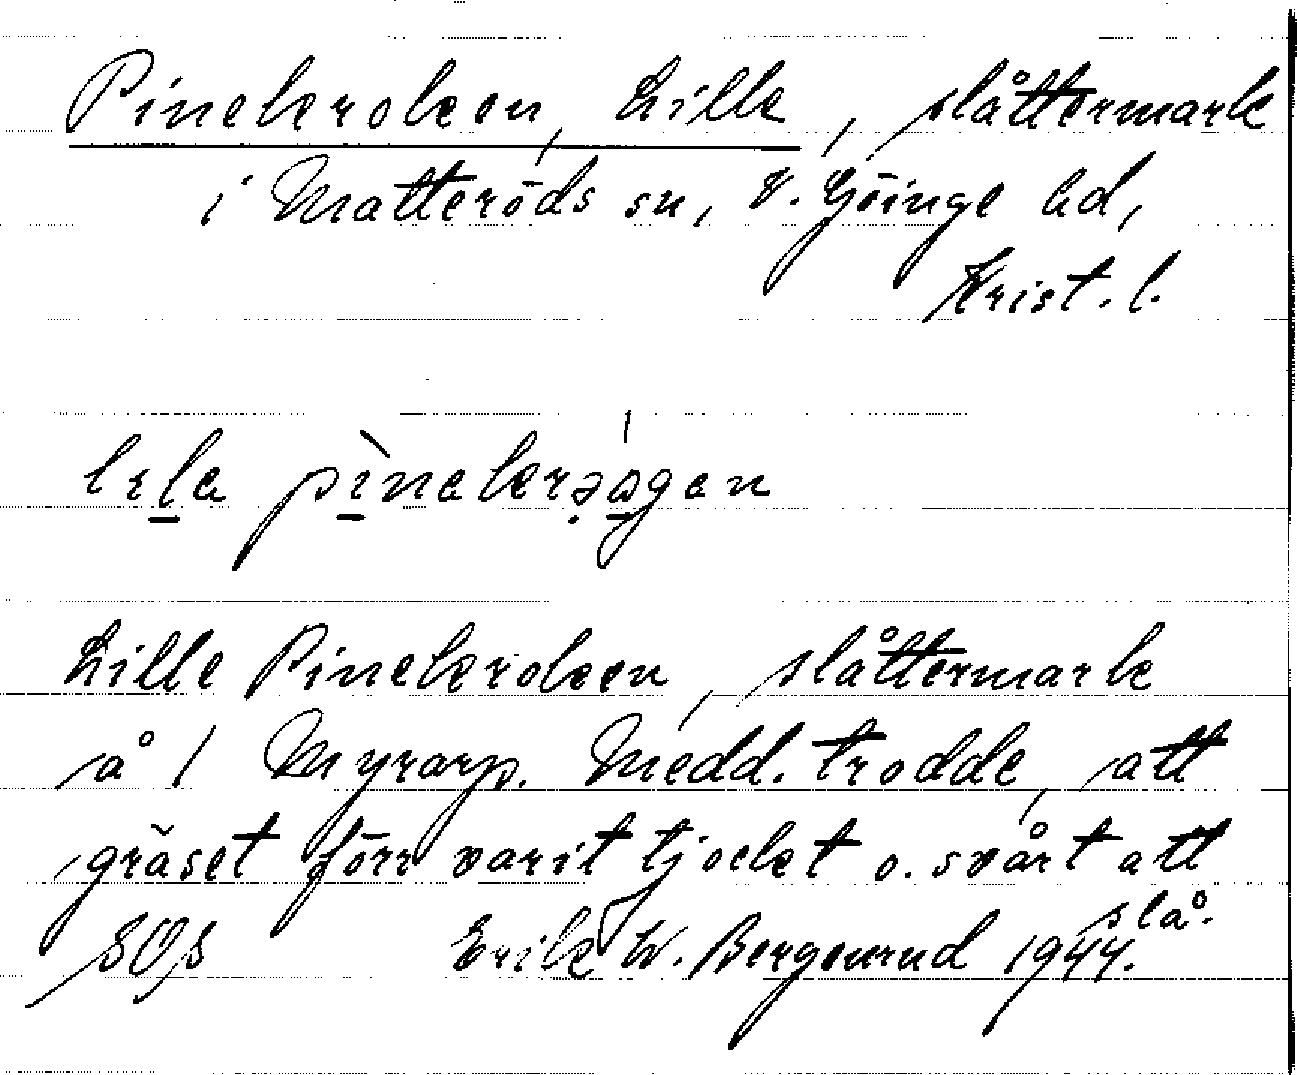 Pinekroken, Lille, slåttermark
i Matteröds sn, V. Göinge hd,
Krist. l.
Lille Pinekroken, slåttermark
å 1 Myrarp. Medd. trodde, att
gräset förr varit tjockt o. svårt att
slå.
SOS Erik W. Bergenrud 1944.